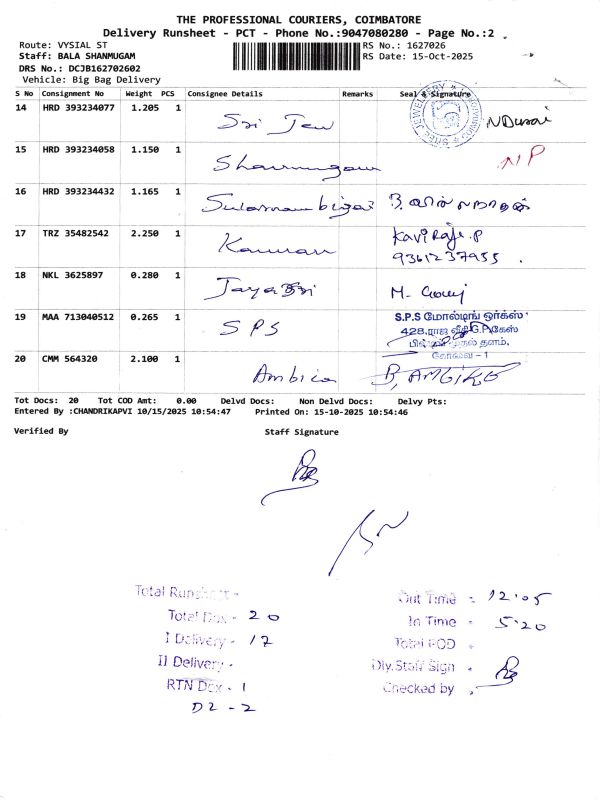 THE PROFESSIONAL COURIERS, COIMBATORE
Delivery Runsheet - PCT - Phone No.:9047080280 - Page No.:2
Route: VYSIAL ST RS No.: 1627026
Staff: BALA SHANMUGAM RS Date: 15-Oct-2025
DRS No.: DCJB162702602
Vehicle: Big Bag Delivery
S No Consignment No Weight PCS Consignee Details Remarks Seal & Signature
14 HRD 393234077 1.205 1 Sri Jew N Durai
15 HRD 393234058 1.150 1 Shanmugam NP
16 HRD 393234432 1.165 1
17 TRZ 35482542 2.250 1 Kannan KaviRaja.P
9361237955.
18 NKL 3625897 0.280 1 M.
19 MAA 713040512 0.265 1 SPS S.P.S மோல்டிங் ஒர்க்ஸ்
428, ராஜ வீதி G.P. கேஸ்
தளம்,
கோவை - 1
20 CMM 564320 2.100 1 Ambica B, AMBIKA
Tot Docs: 20 Tot COD Amt: 0.00 Delvd Docs: Non Delvd Docs: Delvy Pts:
Entered By :CHANDRIKAPVI 10/15/2025 10:54:47 Printed On: 15-10-2025 10:54:46
Verified By Staff Signature
Total Runsheet -
Total Dox - 20
I Delivery - 17
II Delivery -
RTN Dox - 1
D2 - 2
Out Time - 12.05
In Time - 5.20
Total POD -
Dly.Staff Sign -
Checked by -